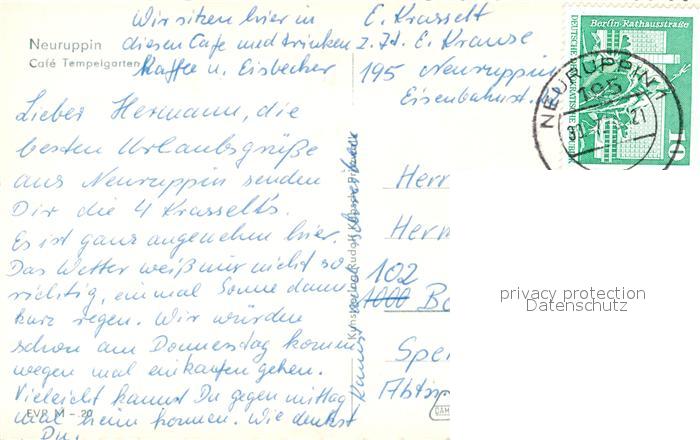 Wir sitzen hier in
diesem Cafe und trinken
Kaffee u. Eisbecher
Neuruppin
Café Tempelgarten
E. Krasselt
z. Zt. E. Krause
195 Neuruppin
Eisenbahnst.
Berlin-Rathausstraße
DEUTSCHE DEMOKRATISCHE REPUBLIK
10
NEURUPPIN 1
195
Lieber Hermann, die
besten Urlaubsgrüße
aus Neuruppin senden
Dir die 4 Krasselt's.
Es ist ganz angenehm hier.
Das Wetter weiß nur nicht so
richtig, einmal Sonne dann
kurz regen. Wir würden
schon am Donnerstag kommen
wegen mal einkaufen gehen.
Vielleicht kannst Du gegen mittag
mal heim kommen. Wie denkst
Du.
EVP M -.20
Herr
Herm
102
1000 Be
Spe
Abt
privacy protection
Datenschutz